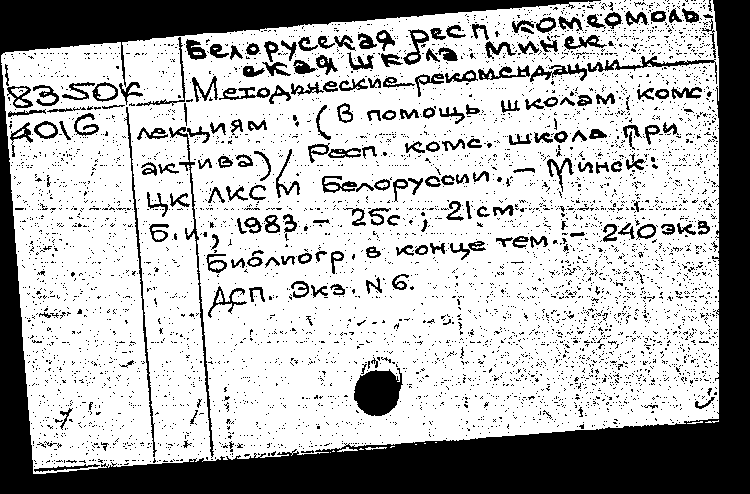 Белорусская респ. комсомоль-
ская школа. Минск.
83-50к Методические рекомендации к
4016. лекциям : (В помощь школам комс.
актива) / Респ. комс. школа при
ЦК ЛКСМ Белоруссии. – Минск:
Б.и., 1983. – 25с.; 21см.
Библиогр. в конце тем. – 240 экз.
ДСП. Экз. N 6.